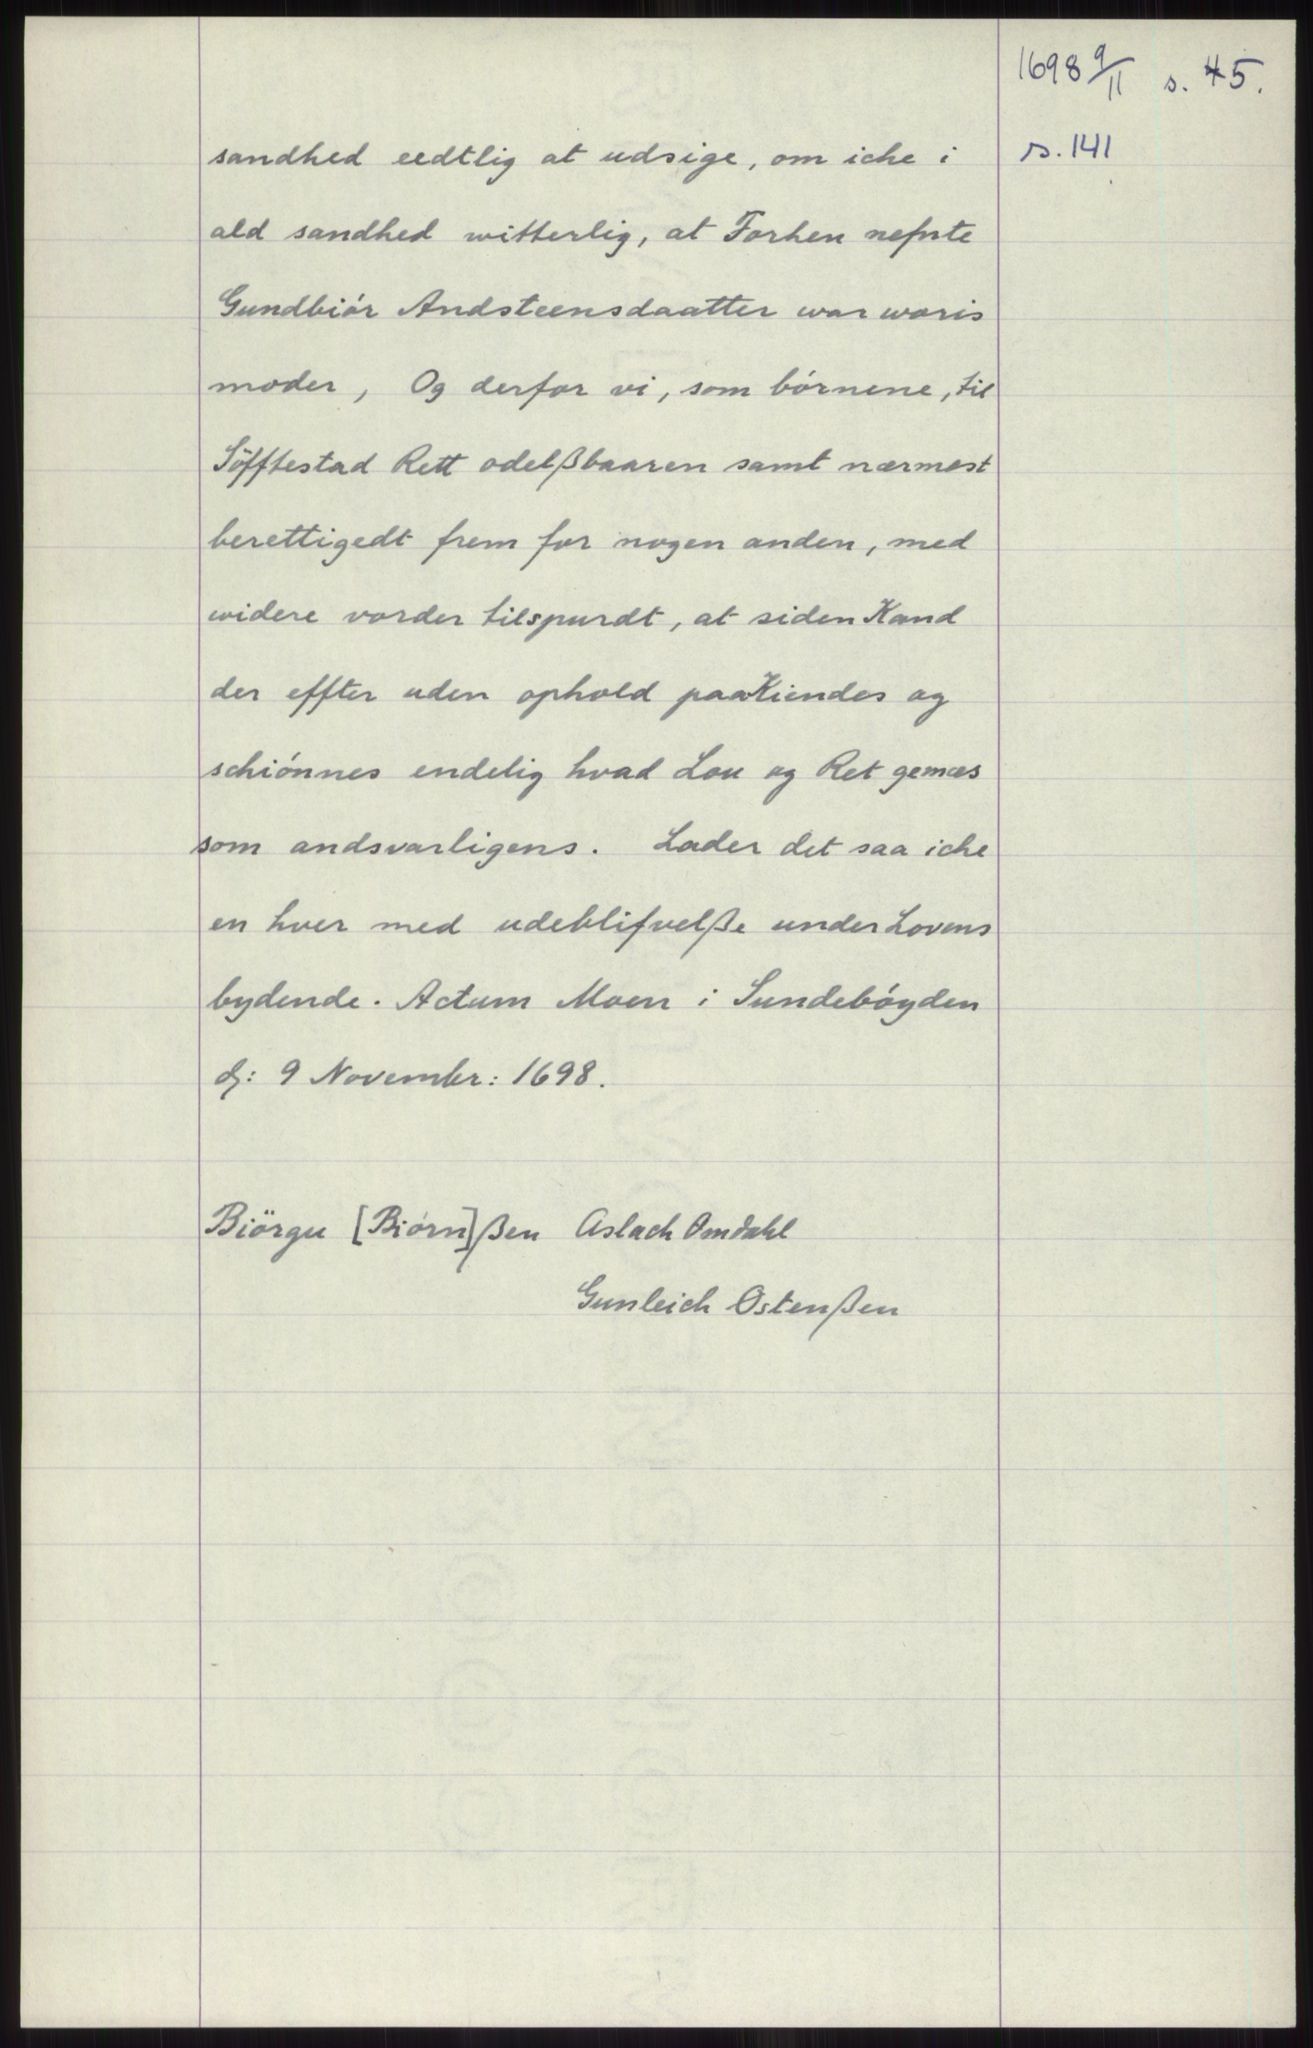 1698 9/11 s. 45.
s. 141
sandhed eedtlig at udsige, om iche i
ald sandhed witterlig, at Forhen nefnte
Gundbiór Andsteensdaatter war woris
moder, Og derfor vi, som bórnene, til
Söfftestad Rett odelßbaaren samt nærmest
berettigedt frem for nogen anden, med
widere vorder tilspurdt, at siden Kand
der effter uden ophold paaKiendes og
schiónnes endelig hvad Lou og Ret gemæs
som andsvarligens. Lader det saa iche
en hver med udeblifvelße under Lovens
bydende. Actum Moen i Sundebóyden
d: 9 Novembr: 1698.
Biörgu [Biórn]ßen Aslach Omdahl
Gunleich Ostenßen